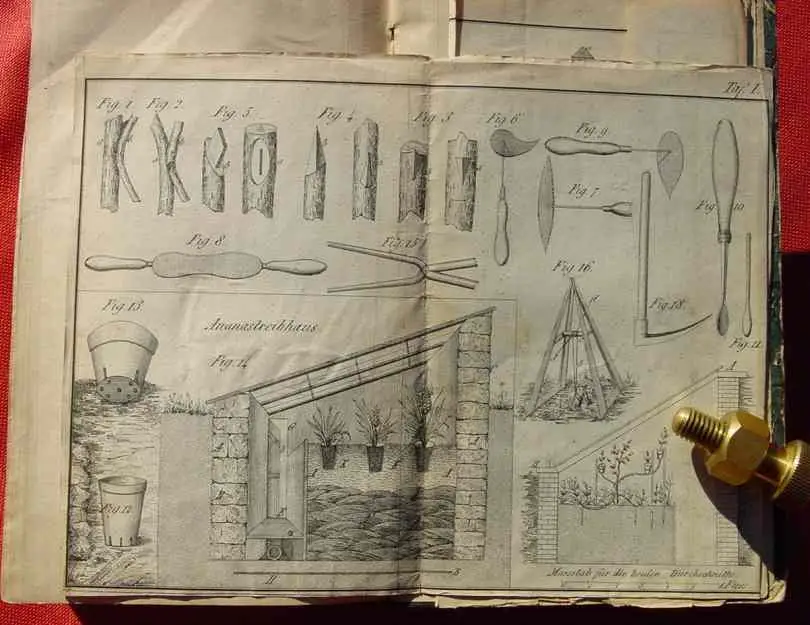 Taf. I.
Fig. 1.
Fig. 2.
Fig. 3.
Fig. 4
Fig. 5
Fig. 6
Fig. 9.
Fig. 7
Fig. 10
Fig. 8.
Fig. 15
Fig. 16.
Fig. 18.
Fig. 11
Fig. 13.
Ananastreibhaus
Fig. 14
A
Fig. 12
B
B
Maasstab für die beiden Durchschnitte